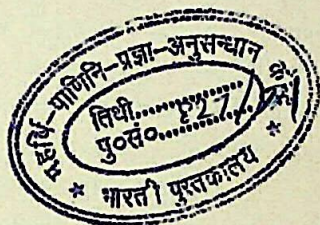 महर्षि-पाणिनि-प्रज्ञा-अनुसन्धान
तिथी..............
पु०सं०..........
भारती पुस्तकालय